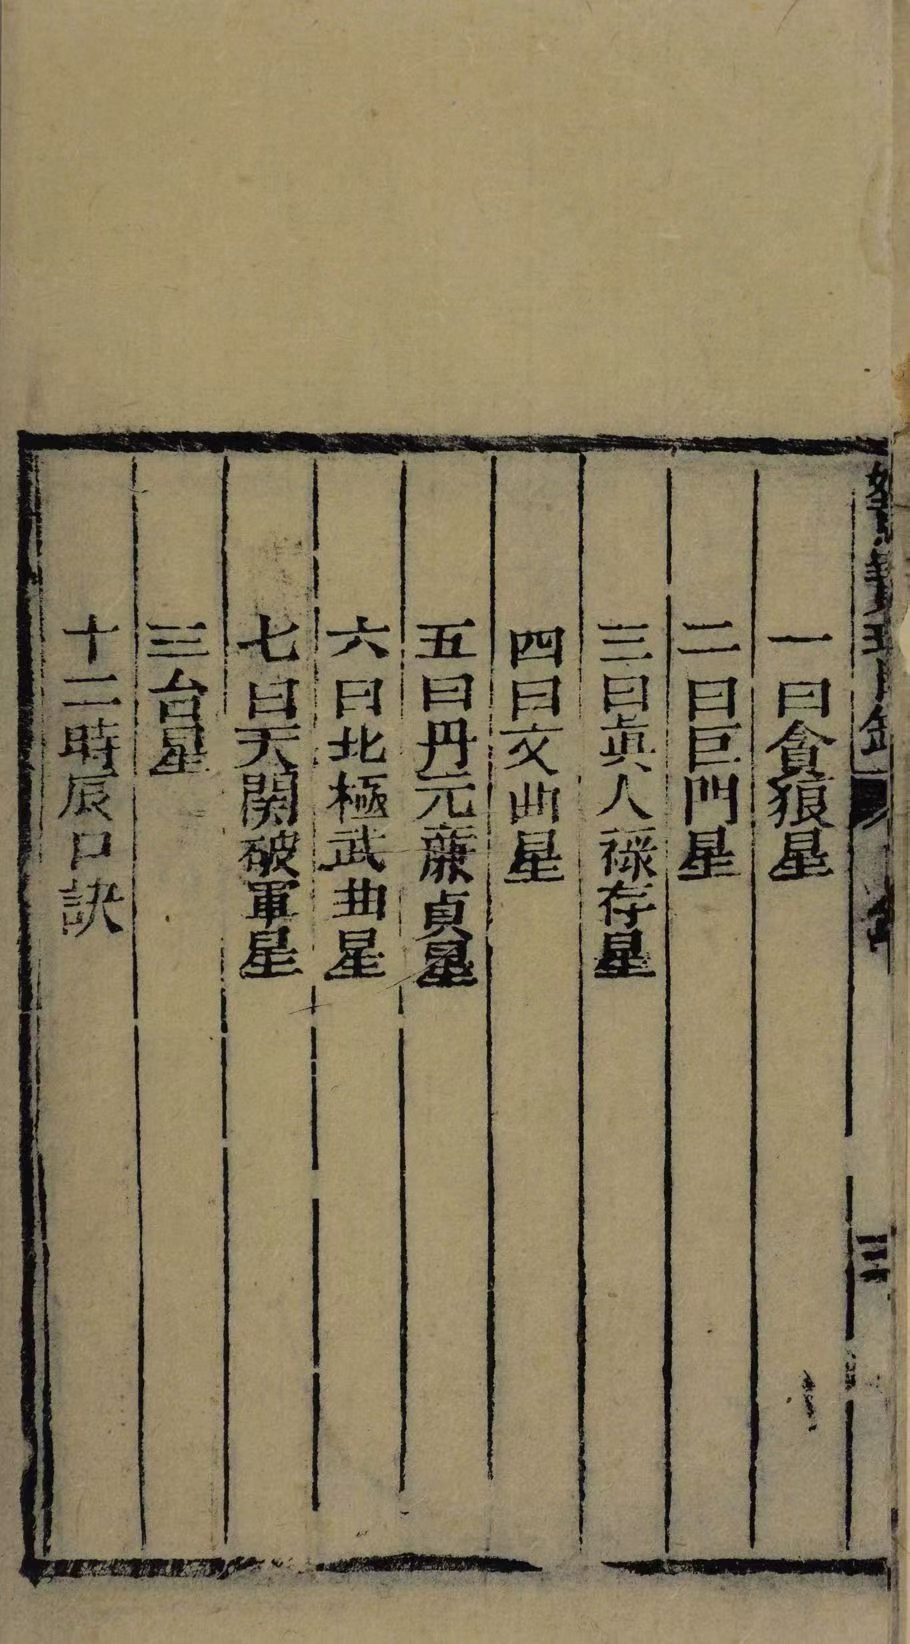 一曰貪狼星
二曰巨門星
三曰眞人祿存星
四曰文曲星
五曰丹元㢘貞星
六曰北極武曲星
七曰天關破軍星
三台星
十二時辰口訣
三